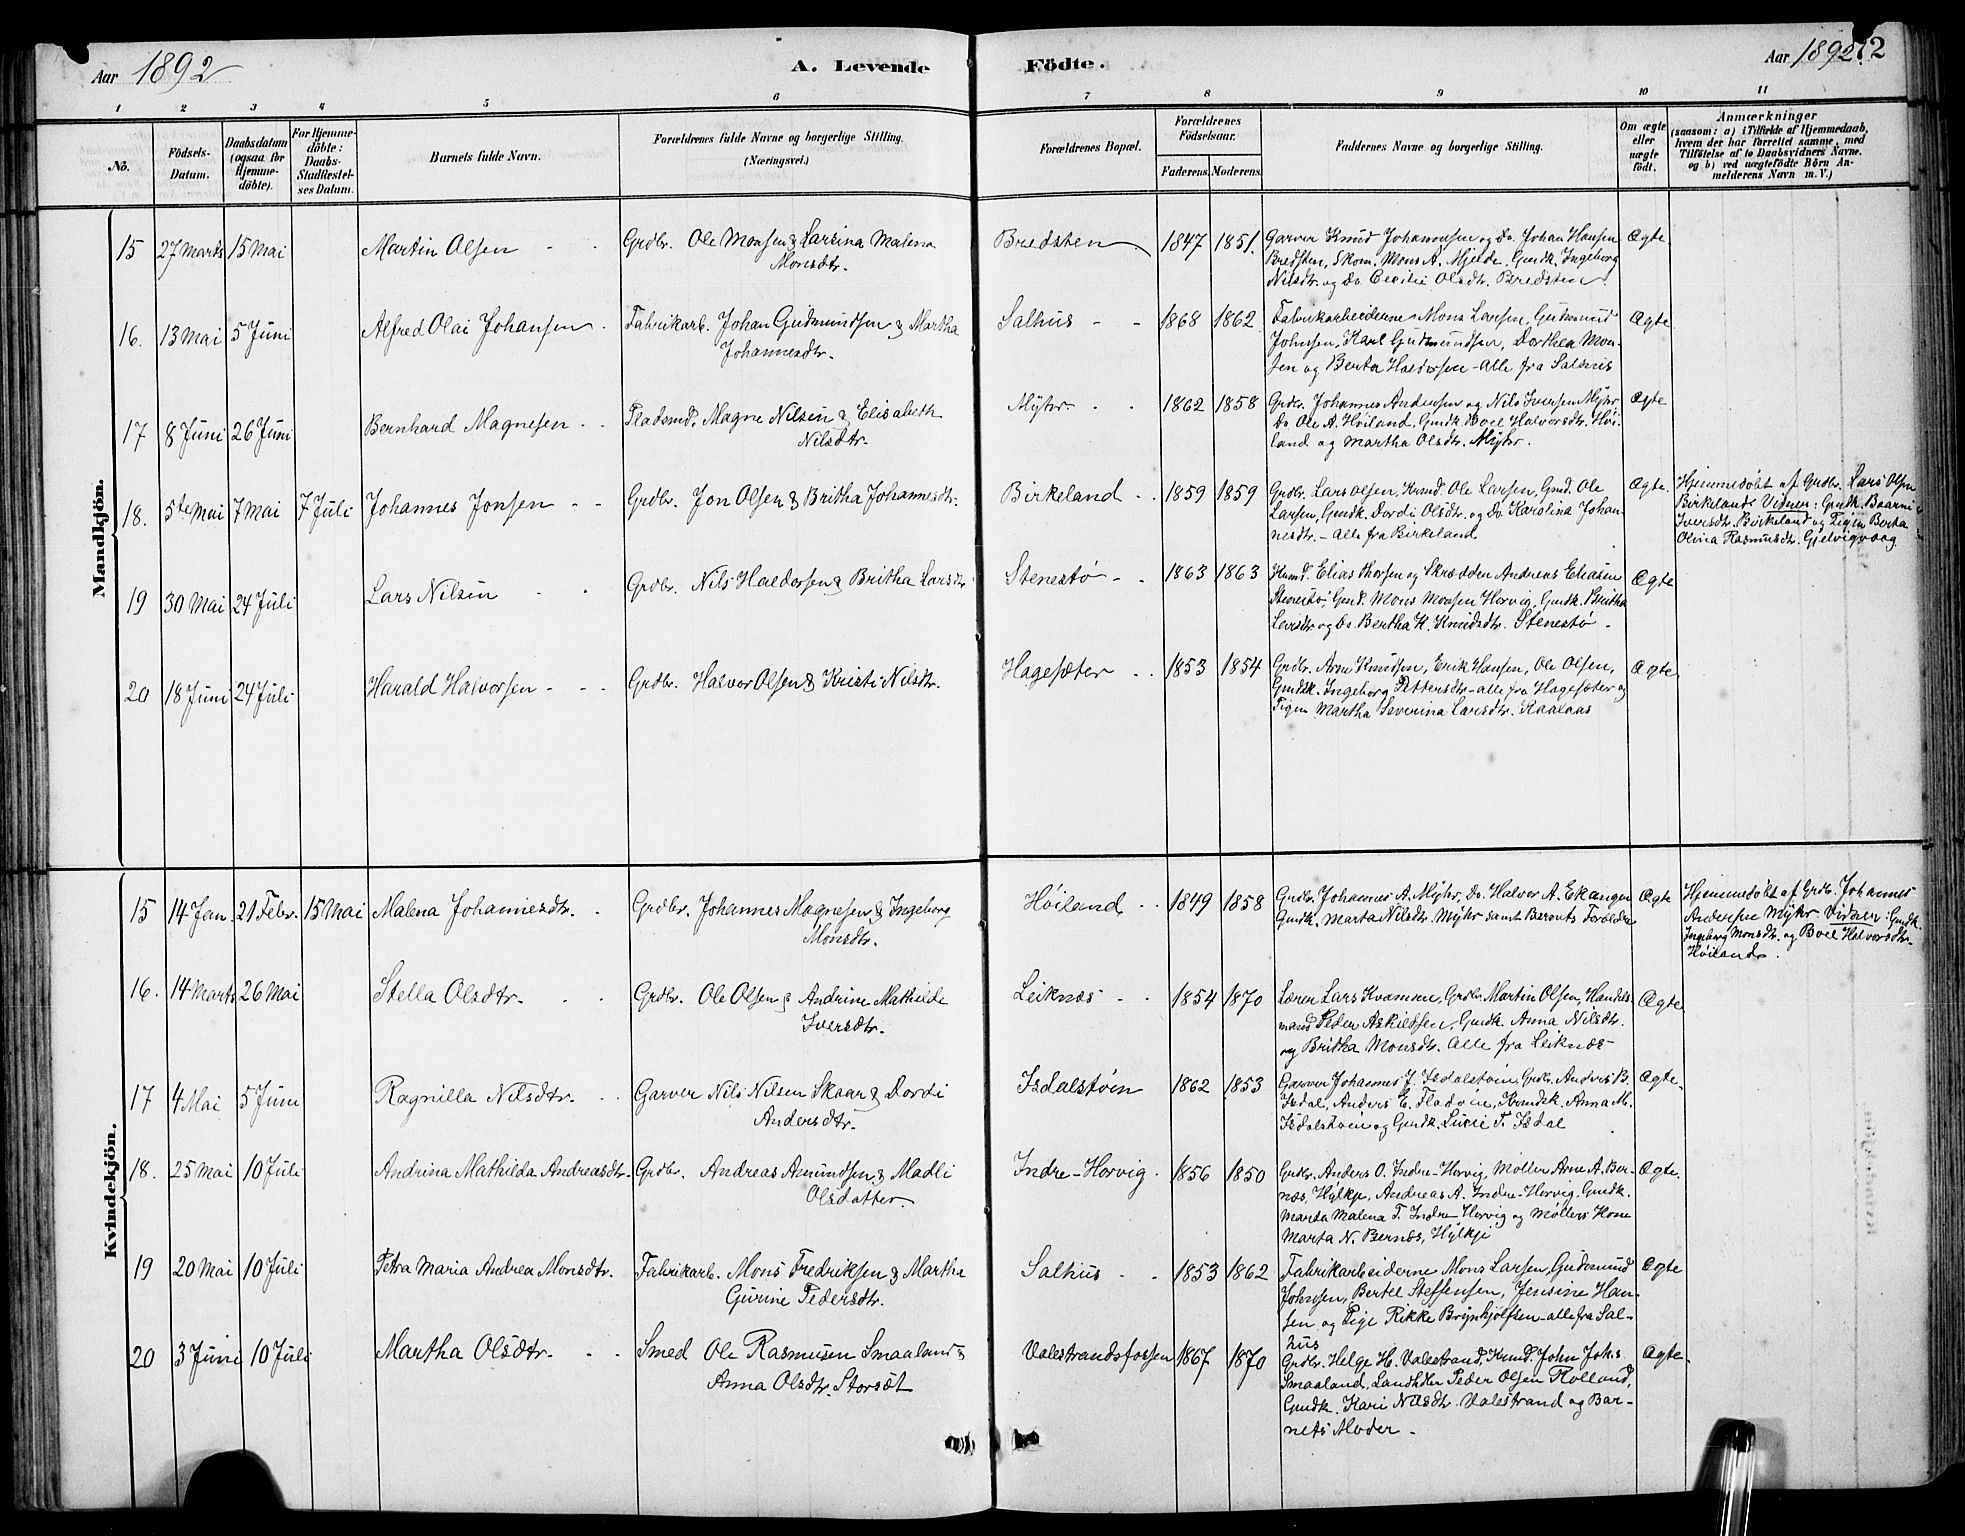 Aar 1892
A. Levende
Födte.
Aar 1892.
72
1 2 3 4 5 6 7 8 9 10 11
No.
Födsels-
Datum.
Daabsdatum
(ogsaa for
Hjemme-
döbte).
For Hjemme-
döbte:
Daabs-
Stadfæstel-
ses Datum.
Barnets fulde Navn.
Forældrenes fulde Navne og borgerlige Stilling.
(Næringsvei.)
Forældrenes Bopæl.
Forældrenes
Födselsaar.
Faderens. Moderens.
Faddernes Navne og borgerlige Stilling.
Om ægte
eller
uægte
födt.
Anmærkninger
(saasom: a) i Tilfælde af Hjemmedaab,
hvem der har forrettet samme, med
Tilföielse af to Daabsvidners Navne.
og b) ved uægtefödte Börn An-
melderens Navn m. V.)
Mandkjön.
15 27 Marts 15 Mai Martin Olsen Grdbr. Ole Monsen & Larsina Malena
Monsdtr.
Bredsten 1847 1851. Garver Knud Johannesen og do. Johan Hansen
Bredsten, Skom. Mons A. Mjelde, Gmdk. Ingeborg
Nilsdtr. og do. Cecilie Olsdtr. Bredsten.
Ægte.
16. 13 Mai 5 Juni Alfred Olai Johansen Fabrikarb. Johan Gudmundsen & Martha
Johannesdtr.
Salhus 1868 1862 Fabrikarbeiderne Mons Larsen, Gudmund
Johnsen, Karl Gudmundsen, Dorthea Mon-
sen og Berta Haldorsen - alle fra Salhus
Ægte.
17 8 Juni 26 Juni Bernhard Magnesen Pladsmd. Magne Nilsen & Elisabeth
Nilsdtr.
Myhr 1862 1858 Grdbr. Johannes Andersen og Nils Iversen Myhr
do. Ole A. Höiland, Gmdk. Boel Halvorsdtr. Höi-
land og Martha Olsdtr. Myhr.
Ægte
18. 5te Mai 7 Mai 7 Juli Johannes Jonsen Grdbr. Jon Olsen & Britha Johannesdtr.
Birkeland 1859 1859 Grdbr. Lars Olsen, Krmd. Ole Larsen, Gmd. Ole
Larsen, Gmdk. Dordi Olsdtr. og do. Karolina Johan-
nesdtr. - alle fra Birkeland
Ægte.
Hjemmedøbt af Grdbr. Lars Olsen
Birkeland Vidner: Gmdk. Baarni
Iversdtr. Birkeland og Pigen Berta
Olina Rasmusdtr. Gjelvigvaag
19 30 Mai 24 Juli Lars Nilsen Grdbr. Nils Haldorsen & Britha Larsdtr
Stenestø 1863 1863 Krmd. Elias Thorsen og Skrædden Andreas Eliasen
Stenestø, Gmd. Mons Monsen Hervig, Gmdk. Britha
Larsdtr og do. Bertha K. Knudsdtr. Stenestø
Ægte
20 18 Juni 24 Juli Harald Halvorsen Grdbr. Halvor Olsen & Kristi Nilsdtr.
Hagesæter 1853 1854 Grdbr. Arne Knudsen, Erik Hansen, Ole Olsen,
Gmdk. Ingeborg Pettersdtr. - alle fra Hagesæter og
Pigen Martha Severina Larsdtr. Kaalaas
Ægte
Kvindekjön.
15 14 Jan 21 Febr. 15 Mai Malena Johannesdtr. Grdbr. Johannes Magnesen & Ingeborg
Monsdtr.
Höiland 1849 1858 Grdbr. Johannes A. Myhr, do. Halver A. Ekangen
Gmdk. Marta Nilsdtr. Myhr samt Barnets Forældre
Ægte
Hjemmedøbt af Grdbr. Johannes
Andersen Myhr Vidner: Gmdk.
Ingeborg Monsdtr. og Boel Halvorsdtr.
Höiland.
16. 14 Marts 26 Mai Stella Olsdtr. Grdbr. Ole Olsen & Andrine Mathilde
Iversdtr.
Leiknæs 1854 1870 Lærer Lars Kvamme, Grdbr. Martin Olsen, Handels-
mand Peder Askildsen, Gmdk. Anna Nilsdtr.
og Britha Monsdtr. Alle fra Leiknæs
Ægte.
17 4 Mai 5 Juni Ragnilla Nilsdtr. Garver Nils Nilsen Skaar & Dordi
Andersdtr.
Isdalstøen 1862 1853 Garver Johannes J. Isdalstøen, Grdbr. Anders B.
Isdal, Anders E. Fladøien, Krmdsk. Anna M.
Isdalstøen og Gmdk. Lucie T. Isdal
Ægte.
18. 25 Mai 10 Juli Andrina Mathilda Andreasdtr. Grdbr. Andreas Amundsen & Madli
Olsdatter
Indre-Hervig 1856 1850 Grdbr. Anders O. Indre-Hervig, Møller Arne A. Ber-
næs, Hylkje, Andreas A. Indre-Hervig, Gmdk.
Marta Malena T. Indre Hervig og Møllers Kone
Marta N. Bernæs, Hylkje
Ægte.
19 20 Mai 10 Juli Petra Maria Andrea Monsdtr. Fabrikarb. Mons Fredriksen & Martha
Gurine Pedersdtr.
Salhus 1853 1862 Fabrikarbeiderne Mons Larsen, Gudmund
Johnsen, Bertel Steffensen, Jensine Han-
sen og Pige Rikke Brynhjolfsen - alle fra Sal-
hus
Ægte
20 3 Juni 10 Juli Martha Olsdtr. Smed Ole Rasmusen Smaaland &
Anna Olsdtr. Storsæt
Valestrandsfossen 1867 1870 Grdbr. Helge H. Valestrand, Krmd. John Johs.
Smaaland, Landhdler Peder Olsen Holland,
Gmdk. Kari Nilsdtr. Valestrand og Bar-
nets Moder.
Ægte.